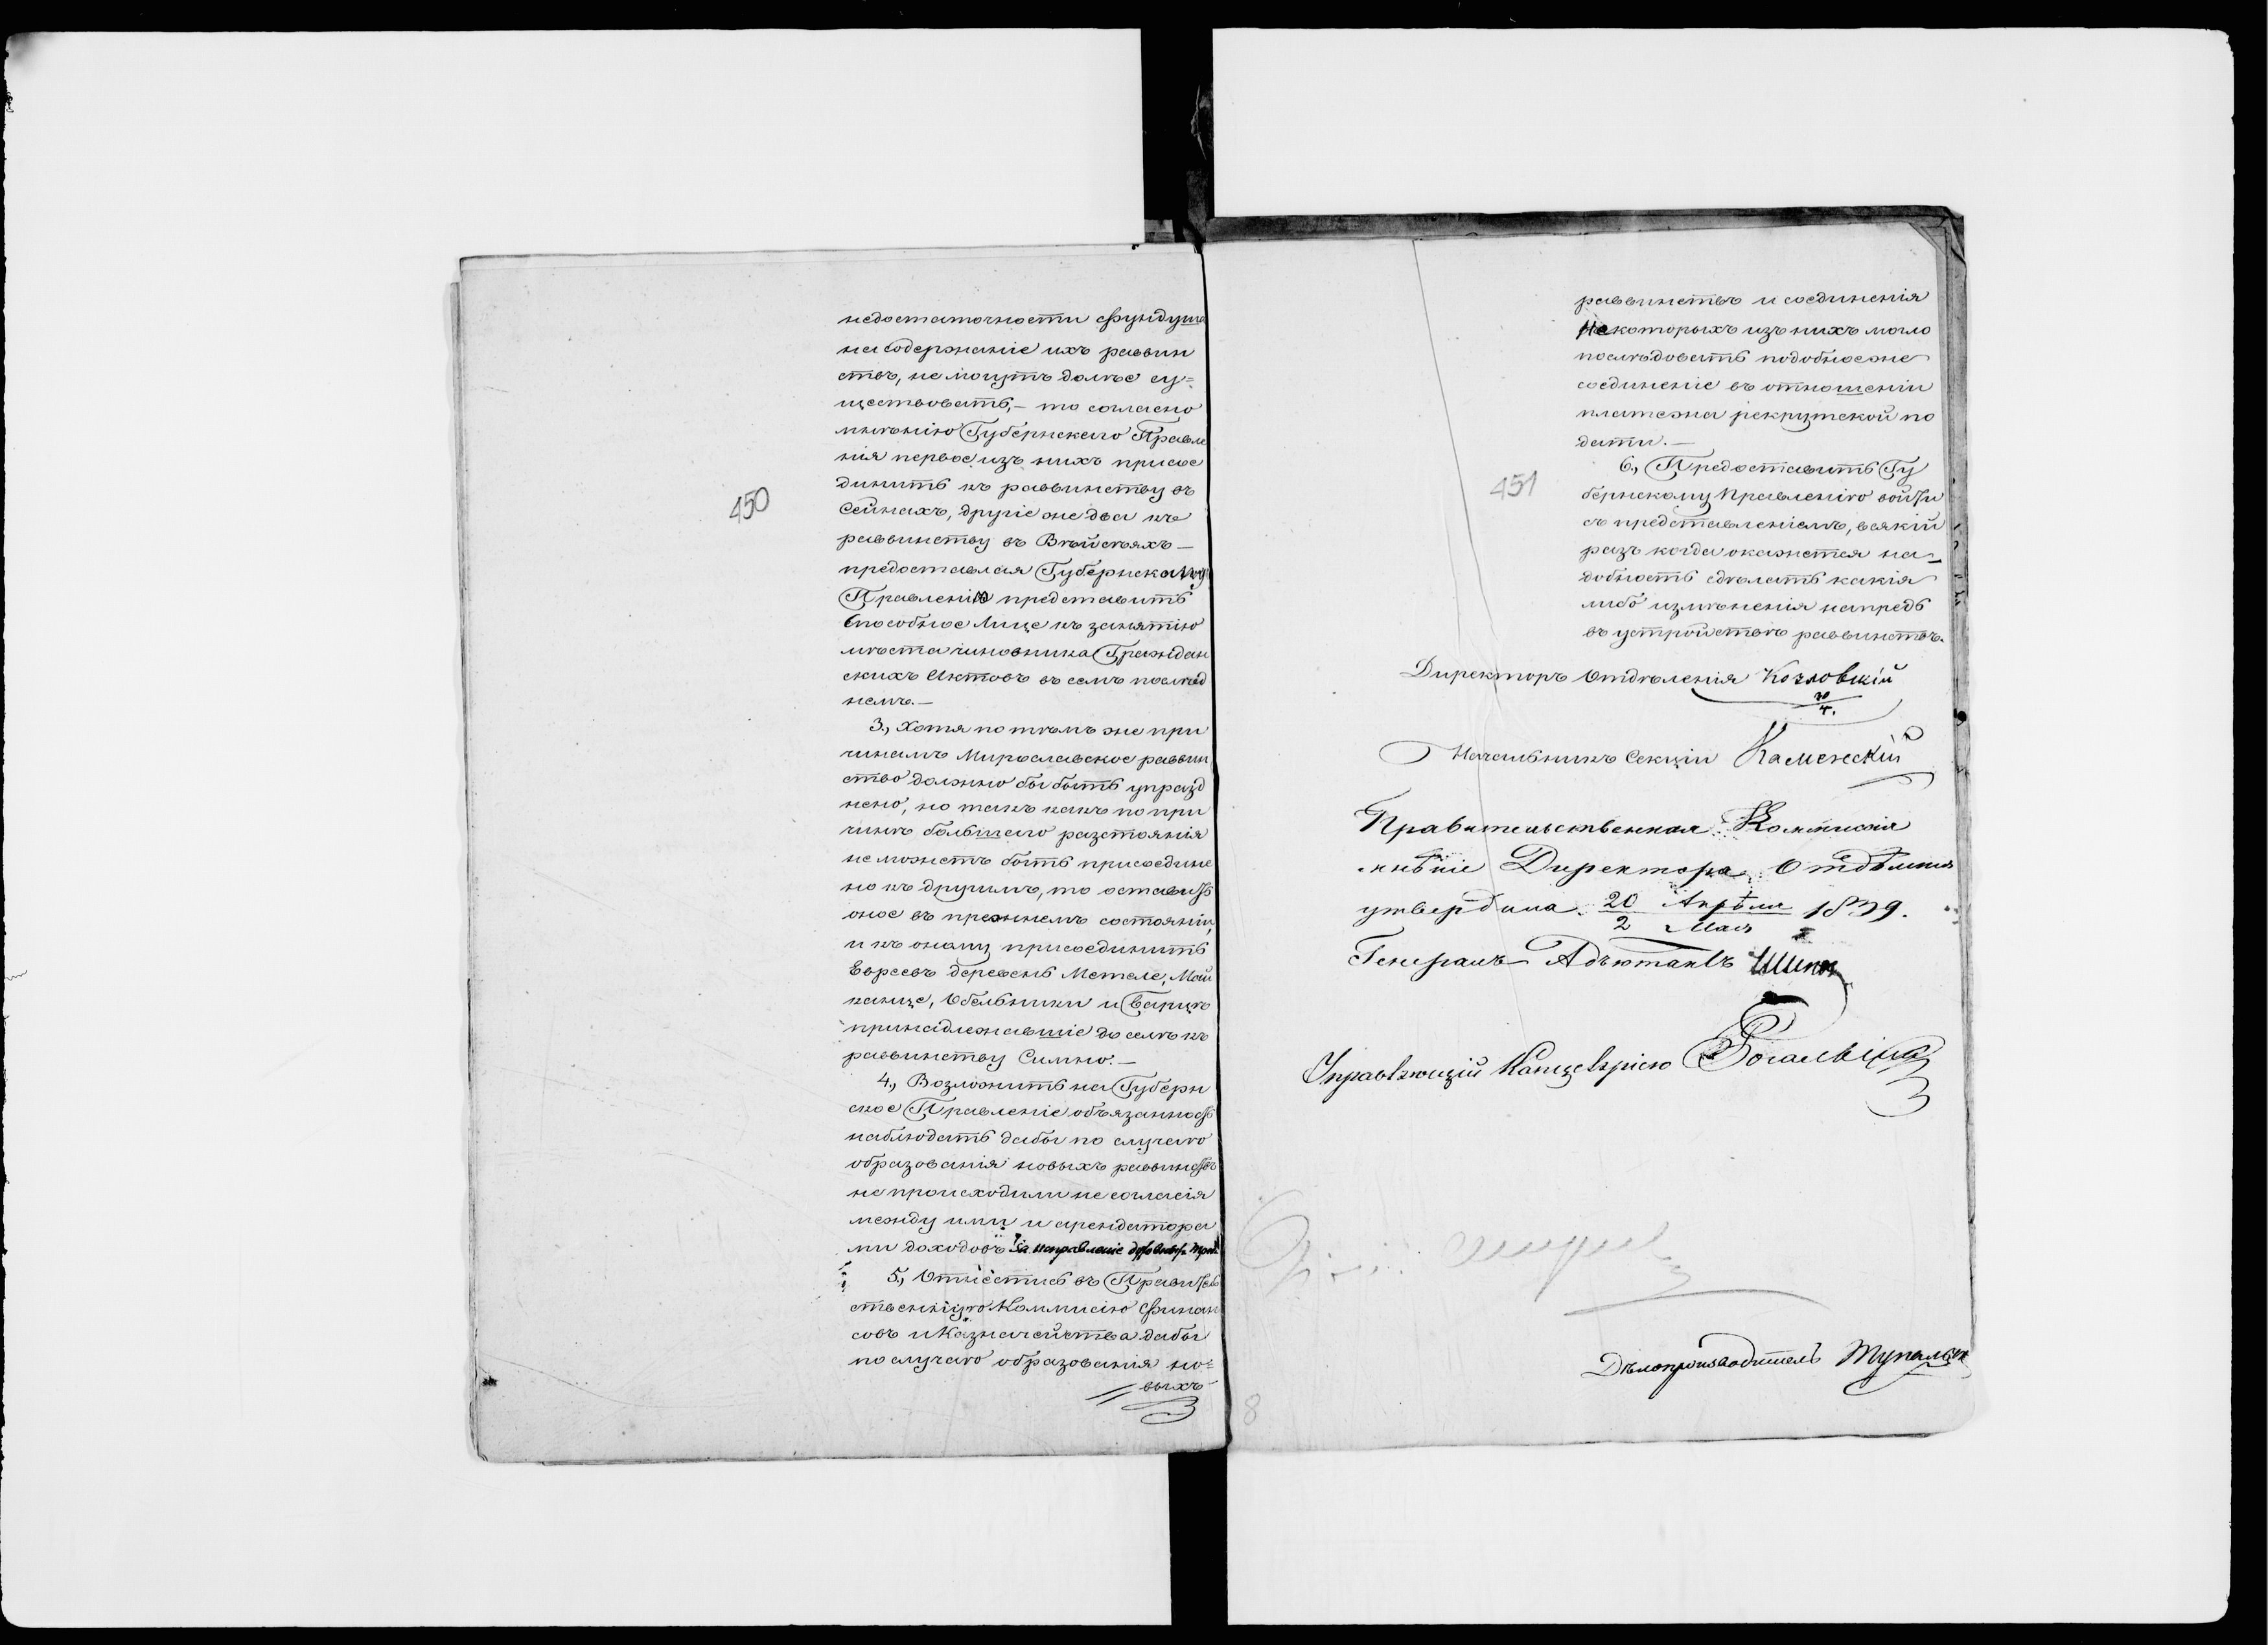 недостаточности фундуша
на содержаніе ихъ раввин
ствъ, не могутъ долѣе су=
ществовать, — то согласно
мнѣнію Губернскаго Правле
нія первое изъ нихъ присое
динить къ раввинству въ
450
Сейнахъ, другіе же два къ
раввинству въ Вѣйсѣяхъ —
предоставляя Губернскому
Правленію представить
способное лице къ занятію
мѣста чиновника Граждан
скихъ Актовъ въ семъ послѣд
немъ. —
3., Хотя по тѣмъ же при
чинамъ Мирославское раввин
ство должно бы быть упразд
нено, но такъ какъ по при
чинѣ большаго разстоянія
не можетъ быть присоедине
но къ другимъ, то оставить
оное въ прежнемъ состояніи,
и къ оному присоединить
Евреевъ деревень Метеле,
Обельники и
принадлежавшіе до селѣ къ
раввинству Симно. —
4., Возложить на Губерн
ское Правленіе объязанность
наблюдать дабы по случаю
образованія новыхъ раввинствъ
не происходили не согласія
между ими и арендатора
ми доходовъ за исправленіе
5., Отнестись въ Правитель
ственную Коммисію Финан
совъ и Казначейства дабы
по случаю образованія но=
выхъ
раввинствъ и соединенія
некоторыхъ изъ нихъ могло
послѣдовать подобное же
соединеніе въ отношеніи
платежа рекрутской по
дати. —
6., Предоставить Гу
451
бернскому Правленію войти
съ представленіемъ, всякій
разъ когда окажется на=
добность сдѣлать какія
либо измѣненія напредь
въ устройствѣ раввинствъ.
Директоръ Отдѣленія Козловскій
20
4.
Начальникъ Секціи Каменскій
Правительственная Коммисія
мнѣніе Директора Отдѣленія
утвердила 20 Апрѣля 1839.
2 Мая
Генералъ Адъютантъ Шипов
Управляющій Канцеляріею
Дѣлопроизводитель
8